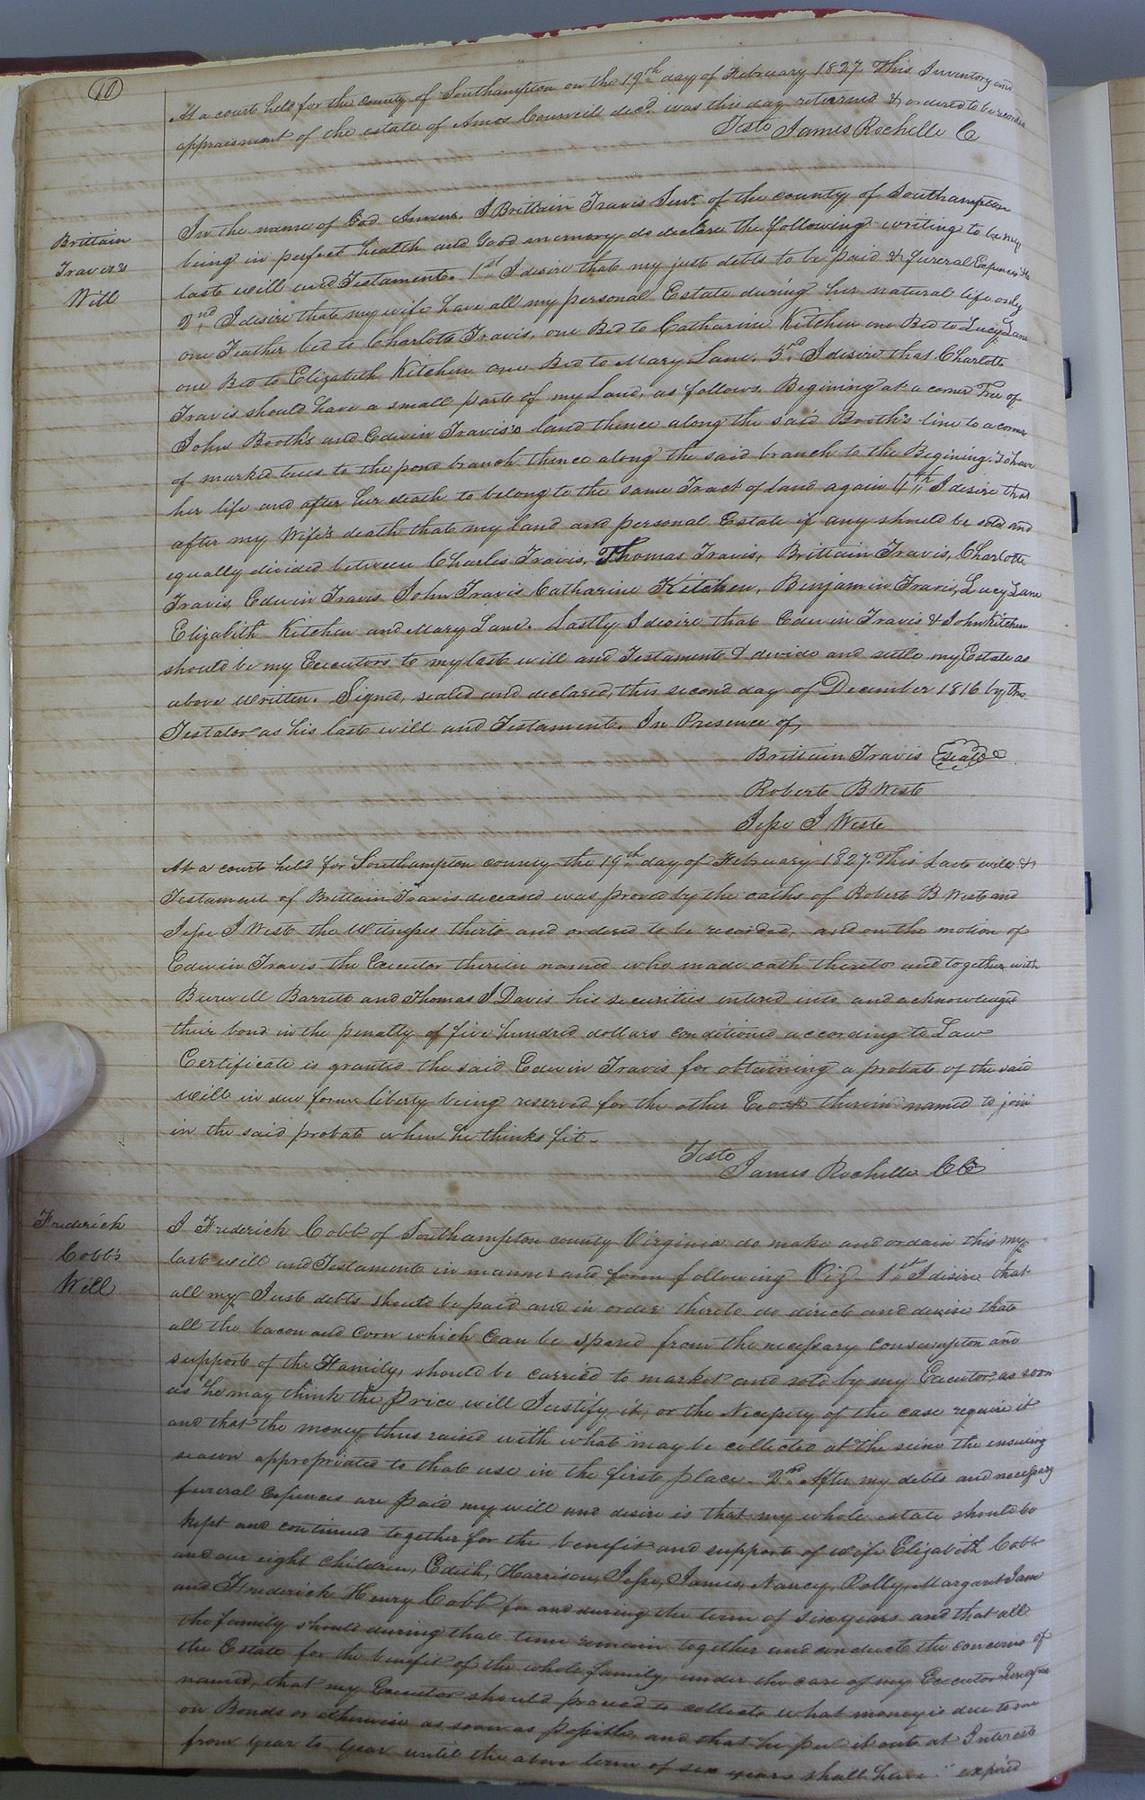 10
At a court held for the county of Southampton on the 19th day of February 1827 This Inventory and
appraisment of the estate of Amos Councill decd. was this day returned & ordered to be recorded
Teste James Rochelle C
Brittain
Travis's
Will
In the name of God Amen. I Brittain Travis Senr. of the county of Southampton
being in perfect health and Good memory do declare the following writing to be my
last will and Testament. 1st I desire that my just debts to be paid & funeral Expences &c
2nd. I desire that my wife have all my personal Estate during her natural life only
one Feather bed to Charlotte Travis, one Bed to Catharine Kitchen one Bed to Lucy Lane
one Bed to Elizabeth Kitchen one Bed to Mary Lane. 3rd. I desire that Charlotte
Travis should have a small part of my Land, as follows. Begining at a corner Tree of
John Booth's and Edwin Travis's land thence along the said Booth's line to a corner
of marked trees to the pond branch thence along the said branch to the Begining. To have
her life and after her death to belong to the same Tract of land again 4th, I desire that
after my Wife's death that my land and personal Estate if any should be sold and
equally divided between Charles Travis, Thomas Travis, Brittain Travis, Charlotte
Travis, Edwin Travis John Travis Catharine Kitchen, Benjamin Travis, Lucy Lane
Elizabith Kitchen and Mary Lane. Lastly I desire that Edwin Travis & John Kitchen
should be my Executors to my last will and Testament & divide and settle my Estate as
above written. Signed, sealed and declared, this second day of December 1816 by the
Testator as his last will and Testament. In Presence of,
Brittain Travis seal
Robert B West
Jesse J West
At a court held for Southampton county the 19th day of February 1827. This Last will &
Testament of Brittain Travis deceased was proved by the oaths of Robert B West and
Jesse J West the Witnesses thereto and ordered to be recorded, and on the motion of
Edwin Travis the Executor therein named who made oath thereto and together with
Burwell Barrett and Thomas J Davis his securities entered into and acknowledged
their bond in the penalty of five hundred dollars conditioned according to Law
Certificate is granted the said Edwin Travis for obtaining a probate of the said
Will in due forme liberty being reserved for the other Exor therein named to join
in the said probate when he thinks fit.
Teste
James Rochelle CC
Frederick
Cobb's
Will
I Frederick Cobb of Southampton county Virginia do make and ordain this my
last will and Testament in manner and form following Viz 1st I desire that
all my Just debts should be paid and in order thereto do direct and desire that
all the bacon and corn which can be spared from the necessary consumption and
support of the Family, should be carried to market and sold by my Executor as soon
as he may think the price will Justify it, or the Necessity of the case require it
and that the money thus raised with what may be collected at the seine the ensuing
season appropriated to that use in the first place. 2nd. After my debts and necessary
funeral expences are paid my will and desire is that my whole estate should be
kept and continued together for the benefit and support of wife Elizabith Cobb
and our eight children, Edith, Harrison, Jesse, James, Nancy, Polly, Margaret Jane
and Frederick Henry Cobb for and during the term of six years and that all
the family should during that time remain together and conducte the concerns of
the Estate for the benefit of the whole family, under the care of my Executor hereafter
named, that my Executor should proceed to collecte what money is due to me
on Bonds or otherwise as soon as possible, and that he put it out at Interest
from year to year until the above term of six years shall have expired